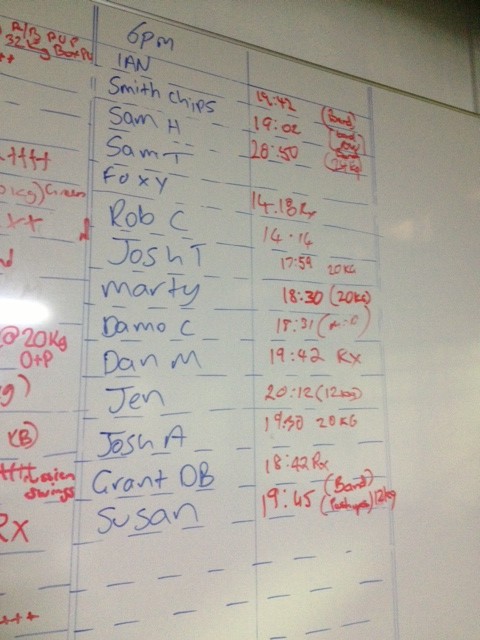 R/B PUP
32kg Box PU
++
6pm
IAN
Smith chips 19:42 (Band)
Sam H 19:02
Sam T 28:50 24kg
++++
Foxy
kg) Green
Rob C 14.18 Rx
Josh T 14.14
17:59 20KG
Marty 18:30 (20kg)
Damo C 18:31
@ 20kg
O+P
Dan M 19:42 RX
Jen 20:12 (12kg)
KB)
Josh A 19:30 20KG
Grant OB 18:42 Rx
swings
Susan 19:45 (Band)
(Pushups) 12kg
RX
+++